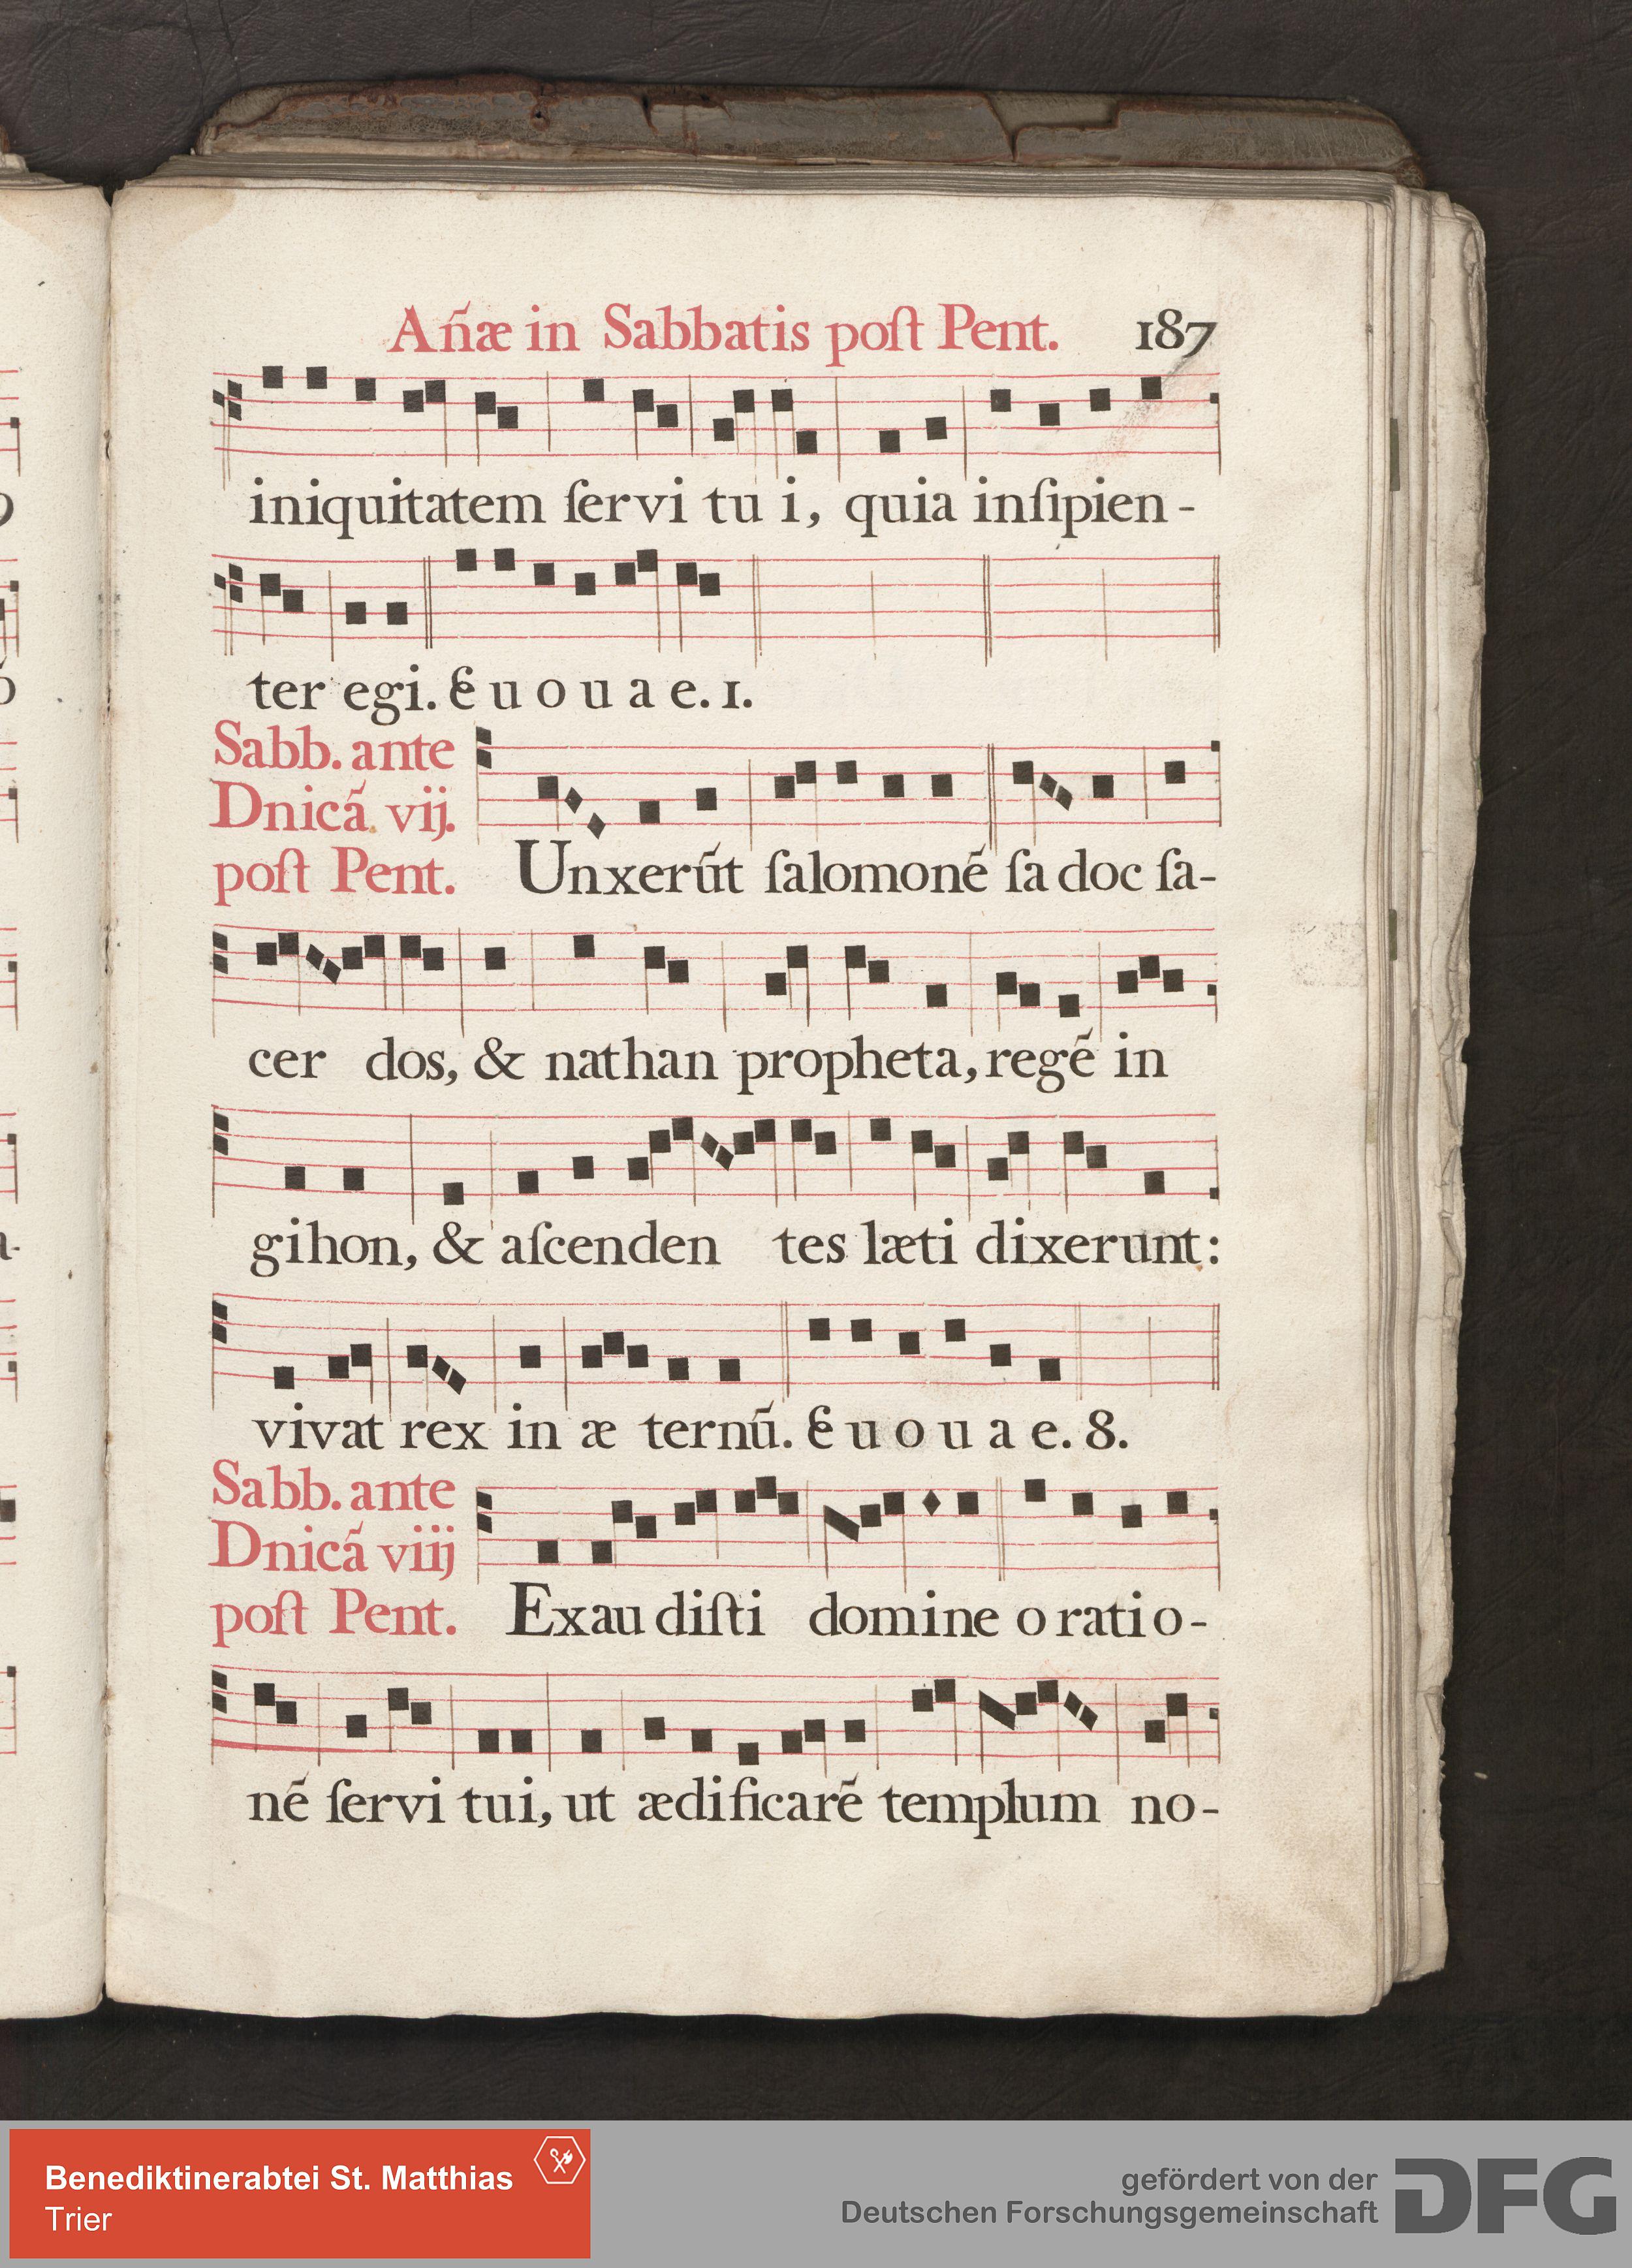 Añæ in Sabbatis poſt Pent. 187
iniquitatem ſervi tu i, quia inſipien-
ter egi. Euouae. 1.
Sabb. ante
Dnicã vij.
poſt Pent.
Unxerũt ſalomonẽ ſadoc ſa-
cer dos, & nathan propheta, regẽ in
gihon, & aſcenden tes læti dixerunt:
vivat rex in æ ternũ. Euouae. 8.
Sabb. ante
Dnicã viij
poſt Pent.
Exau diſti domine oratio-
nẽ ſervi tui, ut ædificarẽ templum no-
Benediktinerabtei St. Matthias
Trier
gefördert von der
Deutschen Forschungsgemeinschaft
DFG